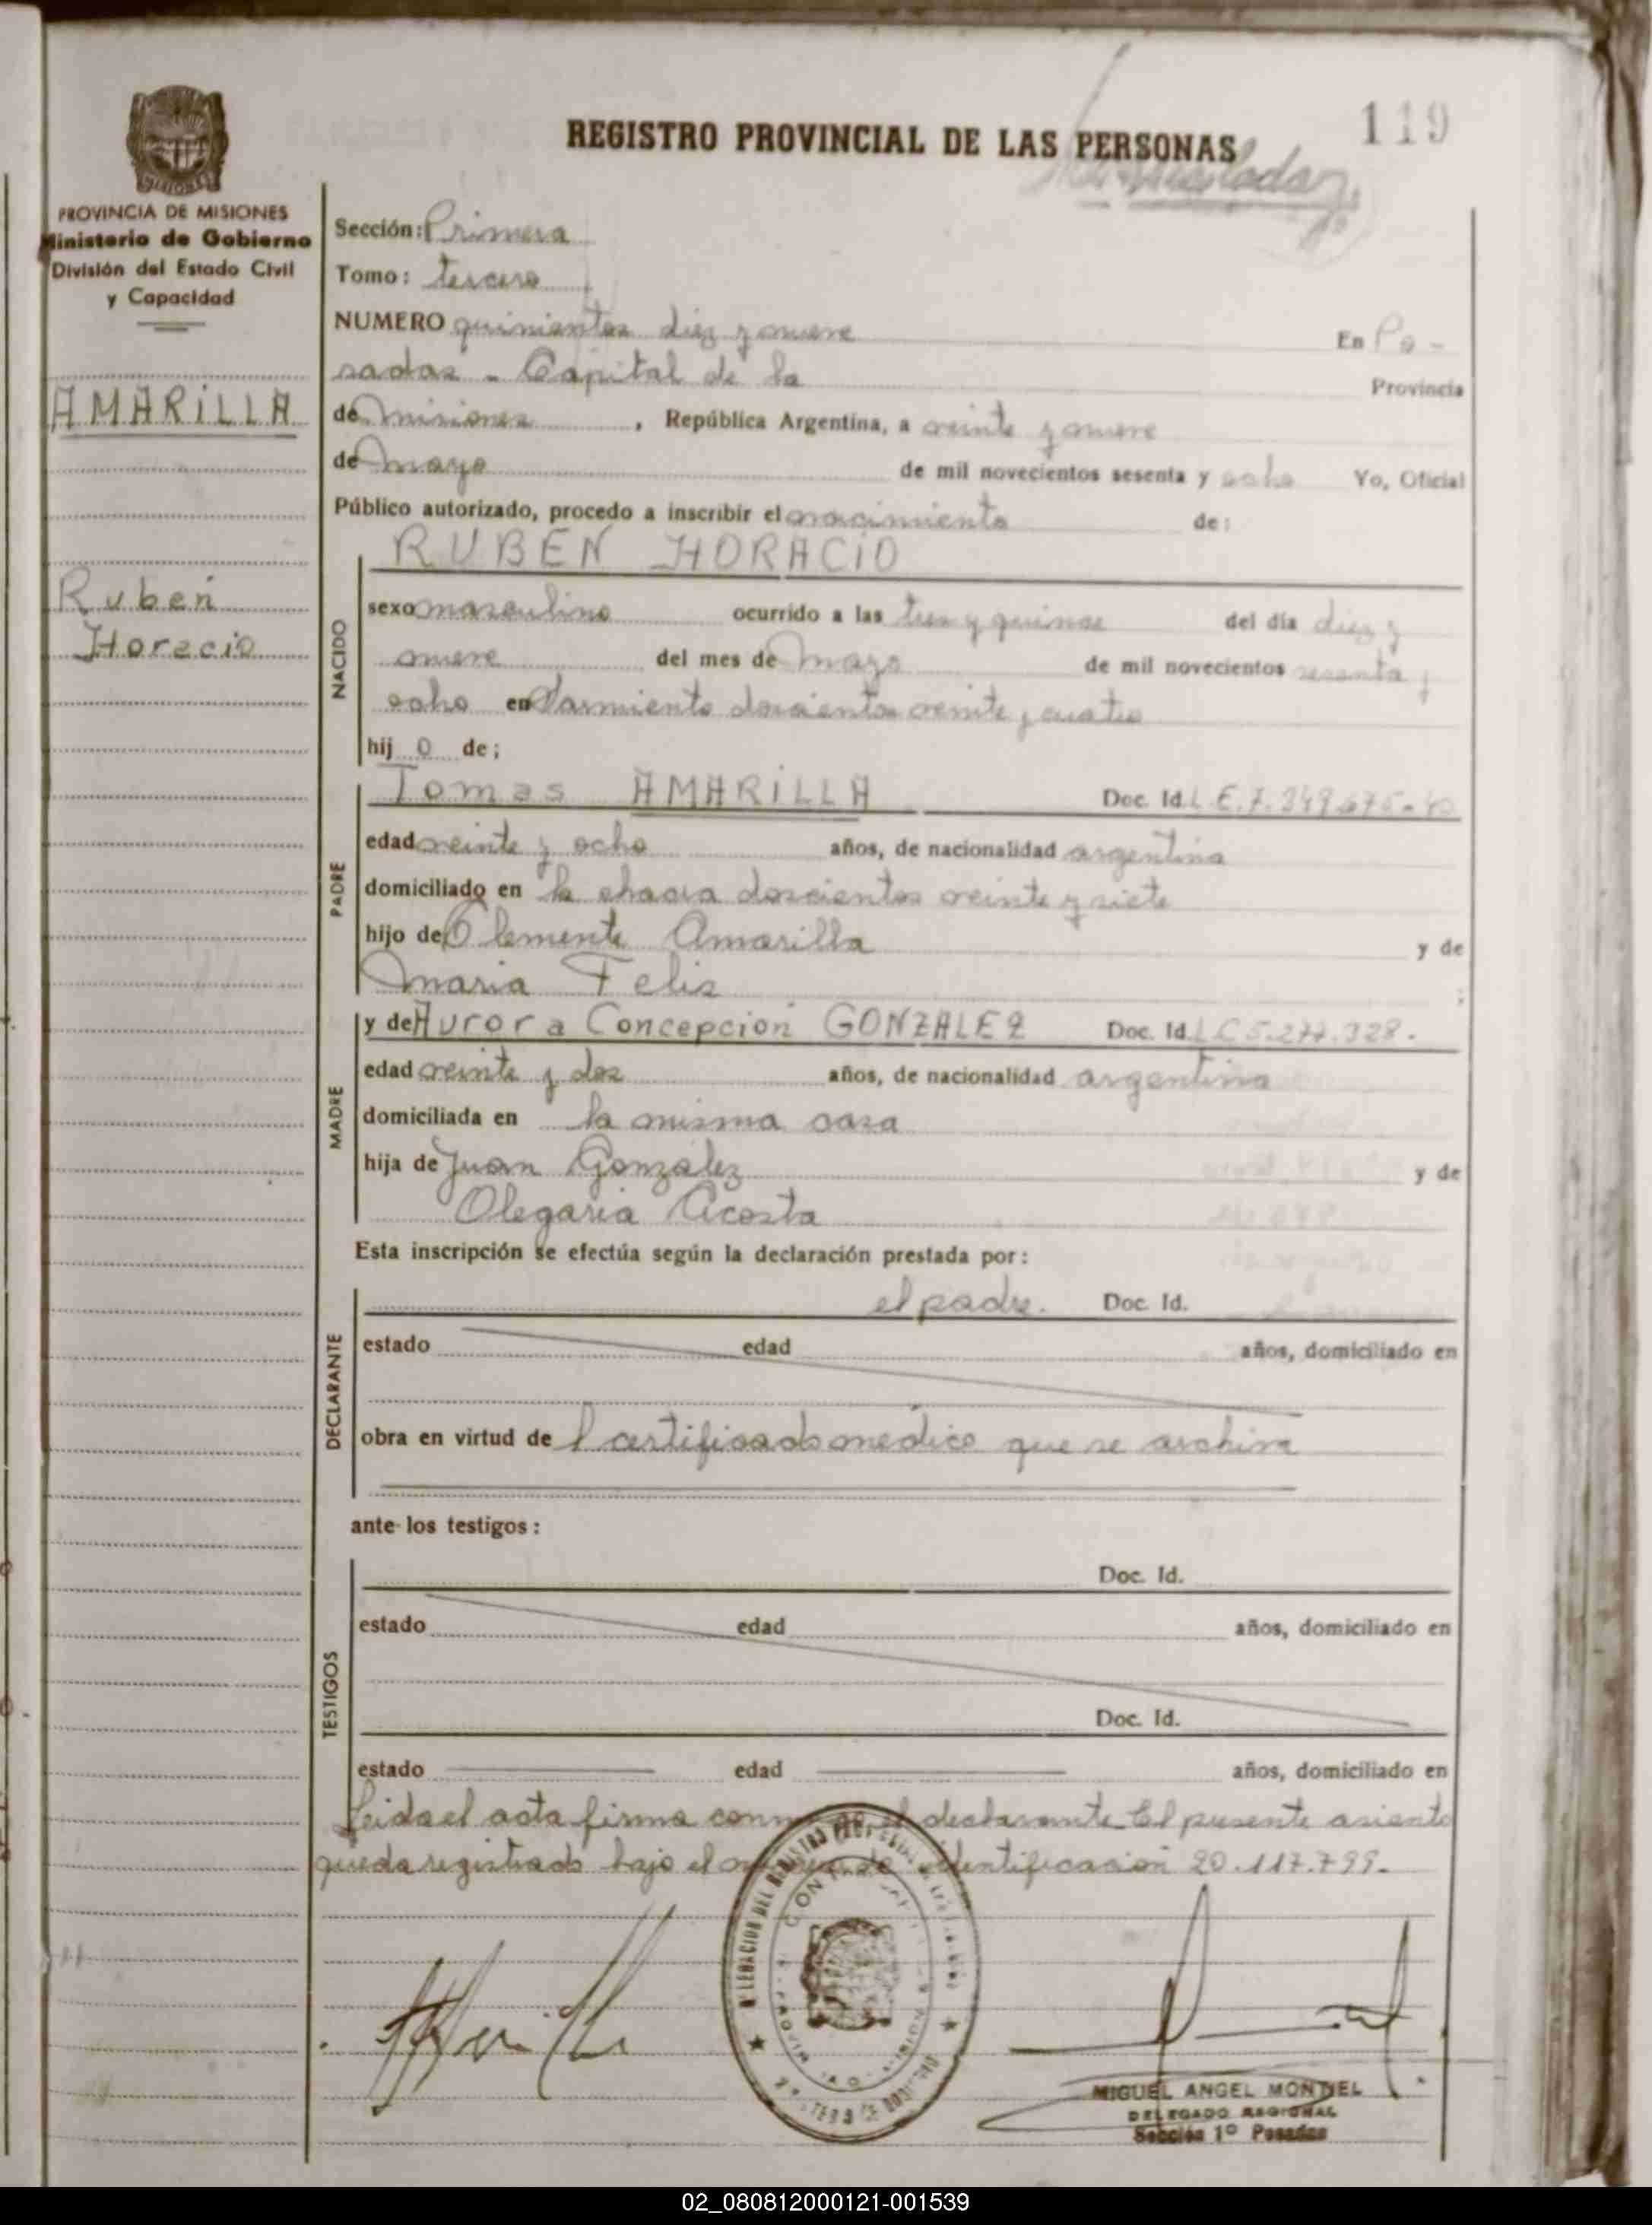 119
REGISTRO PROVINCIAL DE LAS PERSONAS
PROVINCIA DE MISIONES
Ministerio de Gobierno
División del Estado Civil
y Capacidad
AMARILLA
Ruben
Horacio
Sección: Primera
Tomo: tercero
NUMERO quinientos diez y nueve En Po-
sadas - Capital de la Provincia
de Misiones, República Argentina, a veinte y nueve
de mayo de mil novecientos sesenta y ocho Yo, Oficial
Público autorizado, procedo a inscribir el nacimiento de:
RUBEN HORACIO
NACIDO
sexo masculino ocurrido a las tres y quince del día diez y
nueve del mes de Mayo de mil novecientos sesenta y
ocho en Sarmiento doscientos veinte y cuatro
hij o de;
PADRE
Tomas AMARILLA Doc. Id. L.E.7.349.675.-
edad veinte y ocho años, de nacionalidad argentina
domiciliado en la chacra doscientos veinte y siete
hijo de Clemente Amarilla y de
Maria Felis
MADRE
y de Aurora Concepción GONZALEZ Doc. Id. L C 5.277.328.
edad veinte y dos años, de nacionalidad argentina
domiciliada en la misma casa
hija de Juan Gonzalez y de
Olegaria Acosta
Esta inscripción se efectúa según la declaración prestada por:
DECLARANTE
el padre. Doc. Id.
estado edad años, domiciliado en
obra en virtud de l certificado medico que se archiva
ante los testigos:
TESTIGOS
Doc. Id.
estado edad años, domiciliado en
Doc. Id.
estado edad años, domiciliado en
Leida el acta firma el declarante El presente asiento
queda registrado bajo el identificación 20.117.799.
MIGUEL ANGEL MONTIEL
DELEGADO REGIONAL
Sección 1º Posadas
02_080812000121-001539